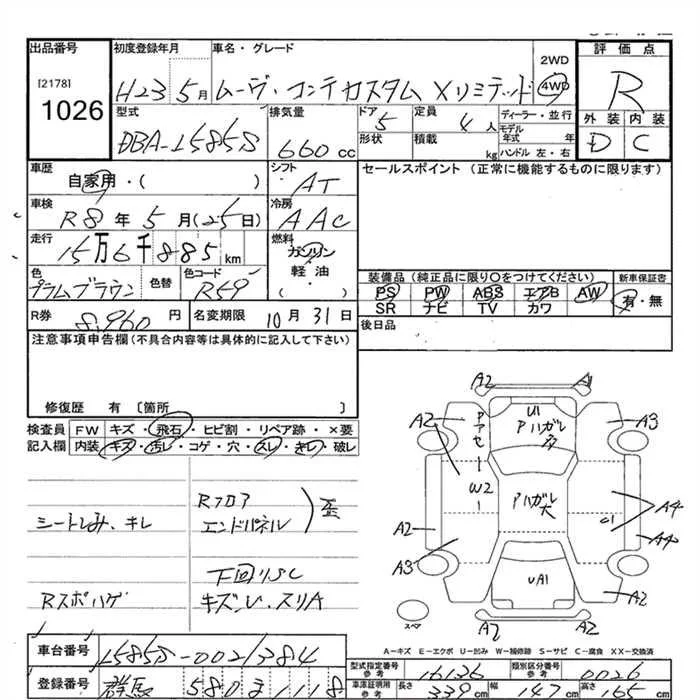 出品番号 初度登録年月 車名・グレード 2WD 評価点
[2178] H23 5月 ムーヴ・コンテカスタム Xリミテッド 4WD R
1026 型式 排気量 ドア 定員 ディーラー・並行 外装 内装
DBA-L585S 660cc 5 4人 モデル年式 年 D C
形状 積載 kg ハンドル 左・右
車歴 シフト セールスポイント (正常に機能するものに限ります)
自家用・( ) AT
車検 冷房
R8年5月(25日) AAC
走行 燃料
15万6千885km ガソリン
軽油
・( )
色 色替 色コード 装備品 (純正品に限り○をつけてください) 新車保証書
プラムブラウン R59 PS PW ABS エアB AW 有・無
SR ナビ TV カワ
R券 8,960円 名変期限 10月31日 後日品
注意事項申告欄(不具合内容等は具体的に記入して下さい)
修復歴 有 〔箇所 〕
検査員 FW キズ・飛石・ヒビ割・リペア跡・×要
記入欄 内装 キズ・汚レ・コゲ・穴・スレ・キレ・破レ
Rフロア
シートしみ、キレ エンドパネル 歪
下回りSC
Rスポハゲ キズU、スリA
A2 A1
A2 U1 A3
Pハガレ
W2 Pハガレ大 A4
A2 U1 A4
A3 UA1 A2
スペア A2 A2
A-キズ E-エクボ U-凹み W-補修跡 S-サビ C-腐食 XX-交換済
車台番号 L585S-0021384 型式指定番号 参考 16136 類別区分番号 参考 0026
登録番号 群馬 580 118 車庫証明用 参考 長さ 339cm 幅 147cm 高さ 165cm